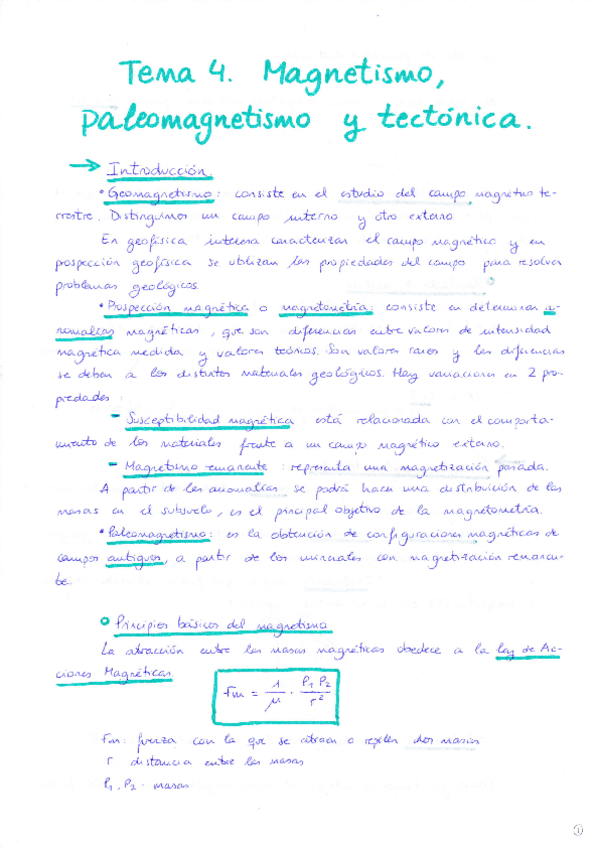 Tema 4. Magnetismo,
paleomagnetismo y tectónica.
→ Introducción.
• Geomagnetismo: consiste en el estudio del campo magnético te-
rrestre. Distinguimos un campo interno y otro externo
En geofísica interesa caracterizar el campo magnético y en
prospección geofísica se utilizan las propiedades del campo para resolver
problemas geológicos.
• Prospección magnética o magnetometría: consiste en determinar a-
nomalías magnéticas, que son diferencias entre valores de intensidad
magnética medida y valores teóricos. Son valores raros y las diferencias
se deben a los distintos materiales geológicos. Hay variaciones en 2 pro-
piedades:
- Susceptibilidad magnética está relacionada con el comporta-
miento de los materiales frente a un campo magnético externo.
- Magnetismo remanente: representa una magnetización pasada.
A partir de las anomalías se podrá hacer una distribución de las
masas en el subsuelo, es el principal objetivo de la magnetometría.
• Paleomagnetismo: es la obtención de configuraciones magnéticas de
campos antiguos, a partir de los minerales con magnetización remanen-
te.
Principios básicos del magnetismo
La atracción entre las masas magnéticas obedece a la Ley de Ac-
ciones Magnéticas.
Fm = 1/μ · P₁ P₂/r²
Fm: fuerza con la que se atraen o repelen dos masas
r distancia entre las masas
P₁, P₂ · masas
1